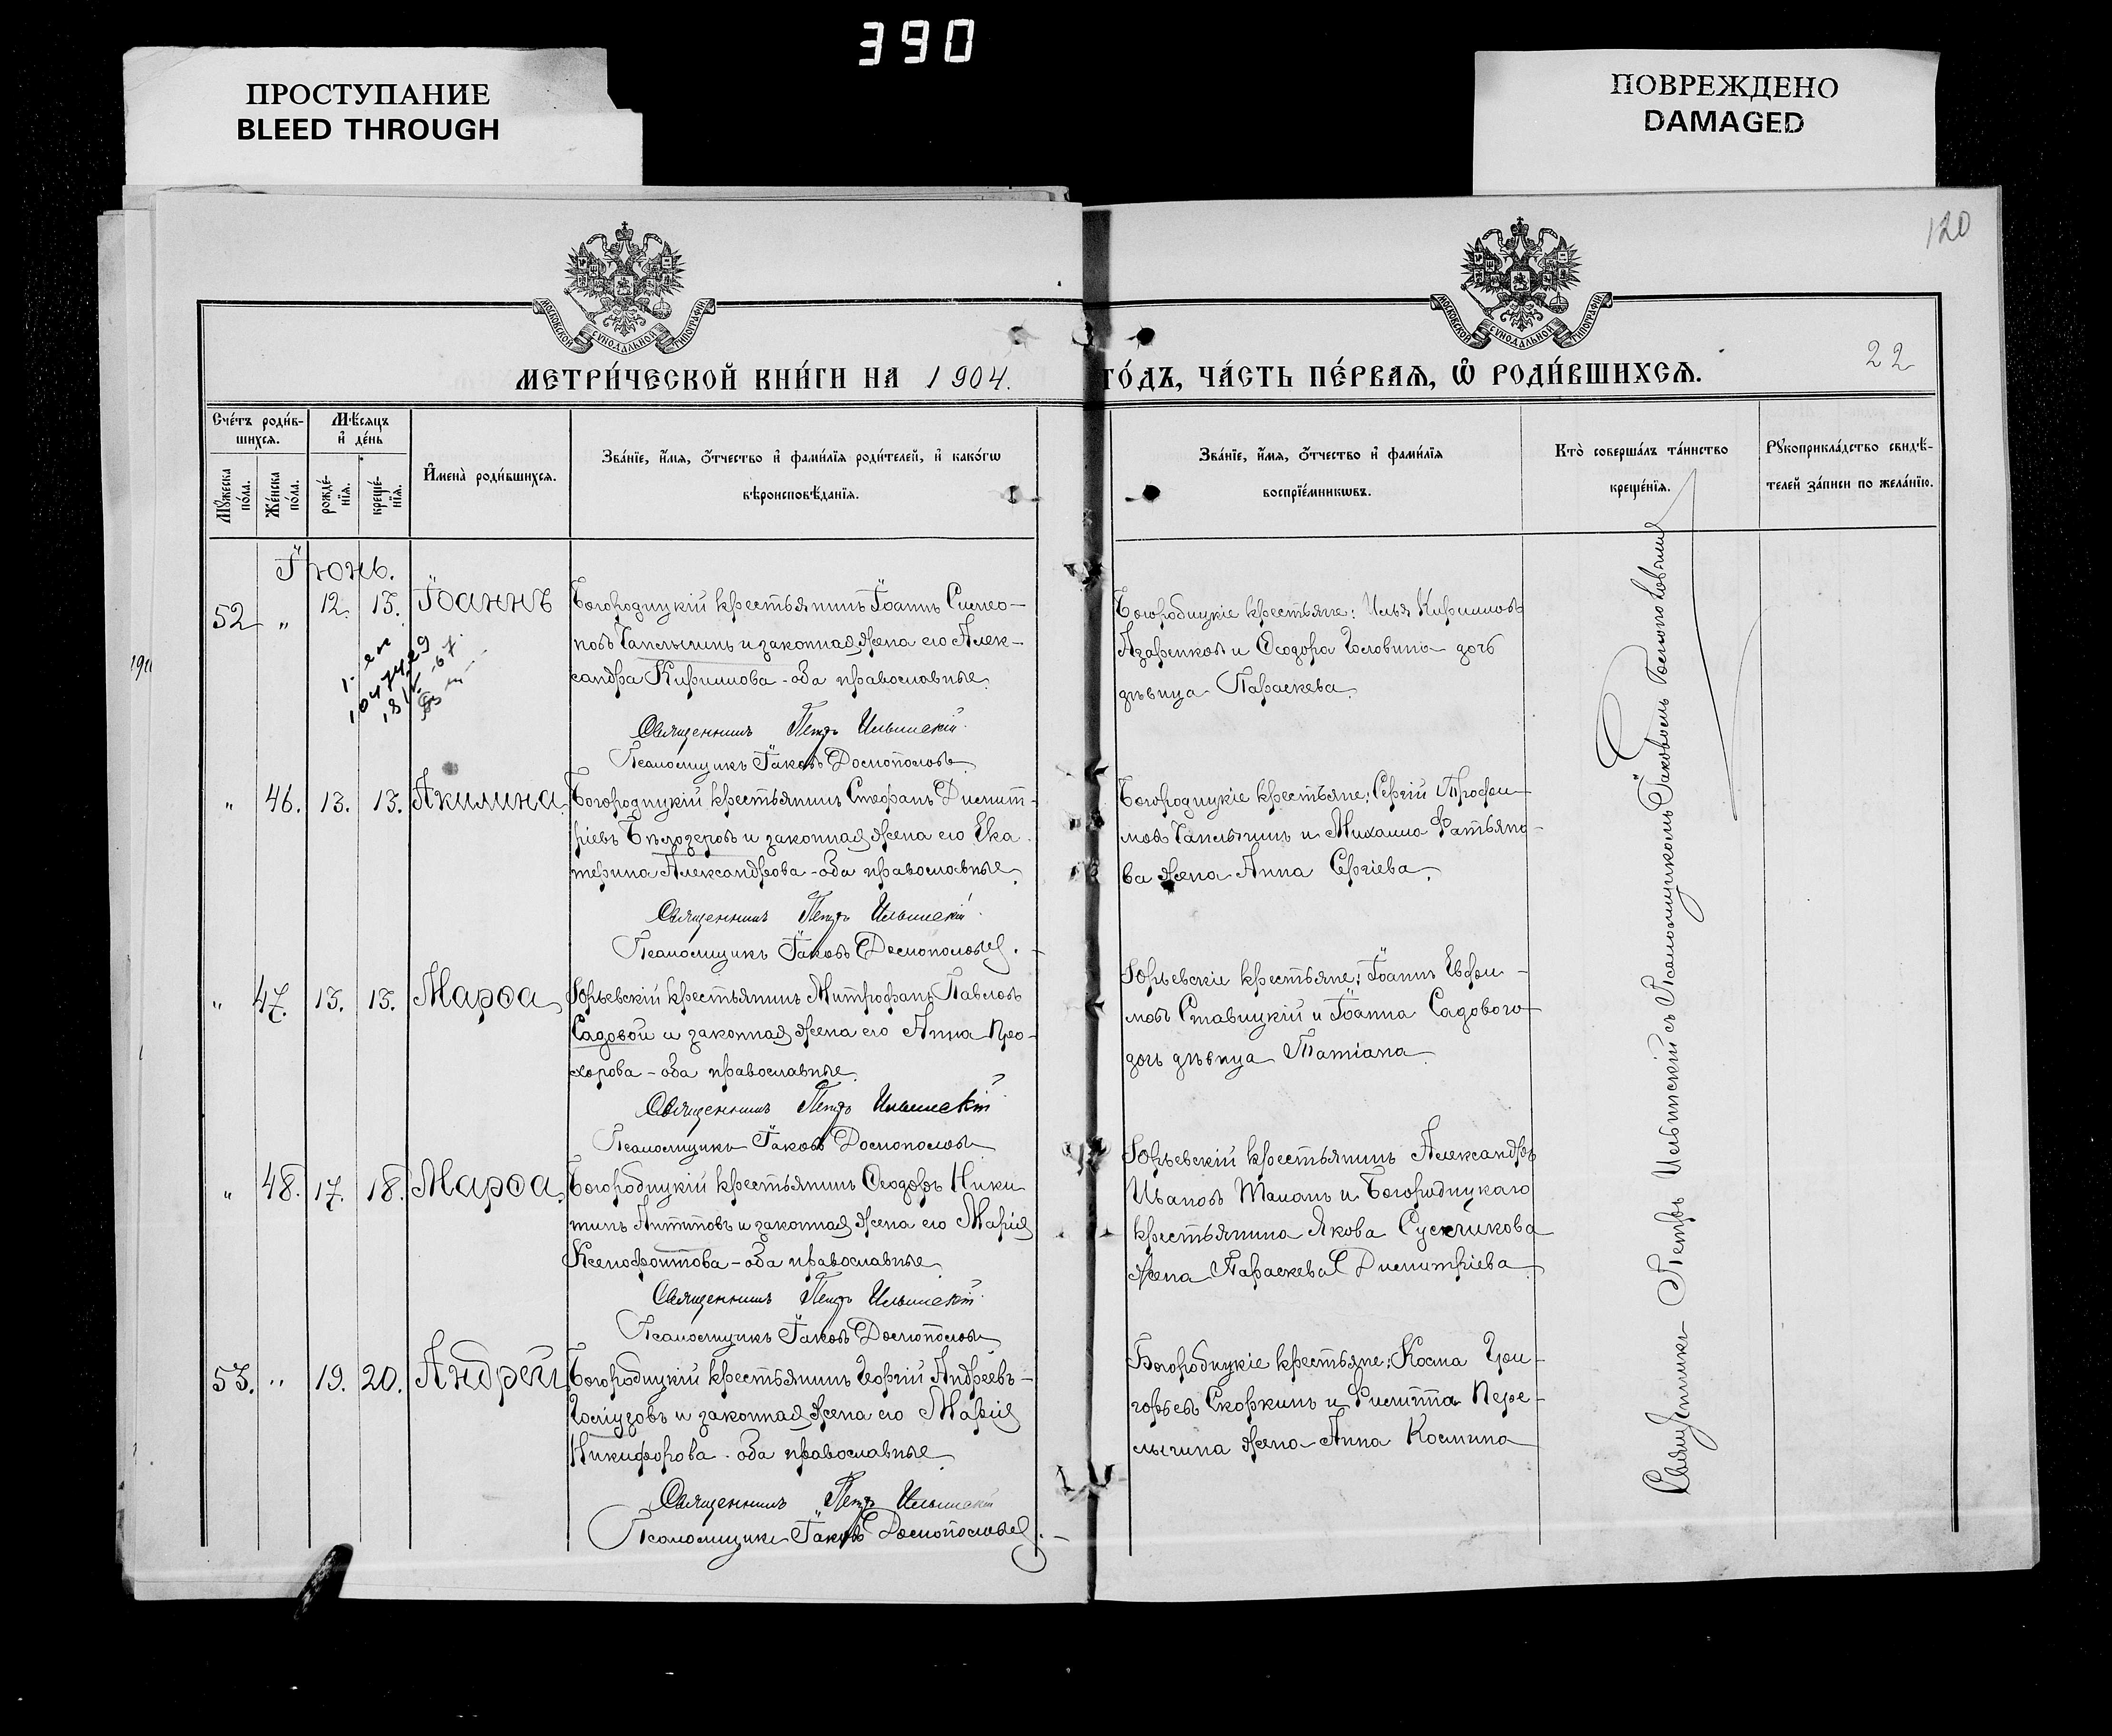 390
ПРОСТУПАНИЕ
BLEED THROUGH
ПОВРЕЖДЕНО
DAMAGED
120
МОСКОВСКОЙ СѴНОДАЛЬНОЙ ТИПОГРАФІИ
МОСКОВСКОЙ СѴНОДАЛЬНОЙ ТИПОГРАФІИ
22
МЕТРИ́ЧЕСКОЙ КНИ́ГИ НА 1904. ГО́ДЪ, ЧА́СТЬ ПЕ́РВАѦ, Ѽ РОДИ́ВШИХСѦ.
Сче́тъ роди́в-
шихсѧ.
Мꙋ́жеска по́ла.
Же́нска по́ла.
Мѣ́сѧцъ
и҆ де́нь
рожде́-
нїѧ.
креще́-
нїѧ.
И҆мена̀ роди́вшихсѧ.
Зва́нїе, и҆́мѧ, ѻ҆́тчество и҆ фами́лїѧ роди́телей, и҆ како́гѡ
вѣроисповѣ́данїѧ.
Зва́нїе, и҆́мѧ, ѻ҆́тчество и҆ фами́лїѧ
воспрїе́мникѡвъ.
Кто̀ соверша́лъ та́инство
креще́нїѧ.
Рꙋкоприкла́дство свидѣ́-
телей за́писи по жела́нїю.
Іюнь.
52 " 12. 13. Іоаннъ
Богородицкій крестьянинъ Іоаннъ Симео-
новъ Чаплыгинъ и законная жена его Алек-
сандра Кириллова - оба православные.
Священникъ Петръ Ильинскій
Псаломщикъ Іаковъ Доспоповъ
Богородицкіе крестьяне: Илья Кирилловъ
Азаренковъ и Ѳеодора Головина дочь
дѣвица Параскева.
" 46. 13. 13. Акилина
Богородицкій крестьянинъ Стефанъ Димит-
ріевъ Бѣлозеровъ и законная жена его Ека-
терина Александрова - оба православные.
Священникъ Петръ Ильинскій
Псаломщикъ Іаковъ
Богородицкіе крестьяне: Сергій Трофи-
мовъ Чаплыгинъ и Михаила Фатьяно-
ва жена Анна Сергіева.
" 47. 13. 13. Марѳа
Юрьевскій крестьянинъ Митрофанъ Павловъ
Садовой и законная жена его Анна Про-
хорова - оба православные.
Священникъ Петръ Ильинскій
Псаломщикъ Іаковъ
Юрьевскіе крестьяне: Іоаннъ Евфи-
мовъ Ставицкій и Іоанна Садового
дочь дѣвица Татіана
" 48. 17. 18. Марѳа
Богородицкій крестьянинъ Ѳеодоръ Ники-
тинъ Антиповъ и законная жена его Марія
Ксенофонтова - оба православные.
Священникъ Петръ Ильинскій
Псаломщикъ Іаковъ
Юрьевскій крестьянинъ Александръ
Ивановъ и Богородицкаго
крестьянина Якова Сусликова
жена Параскева Димитріева
53. " 19. 20. Андрей
Богородицкій крестьянинъ Георгій Андреевъ
и законная жена его Марія
Никифорова - оба православные
Священникъ Петръ Ильинскій
Псаломщикъ Іаковъ
Богородицкіе крестьяне: Косма Гри-
горьевъ Скоркинъ и Филиппа Пере-
лыгина жена Анна Космина
Священникъ Петръ Ильинскій съ Псаломщикомъ Іаковомъ